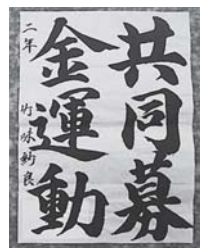 共同募
金運動
二年